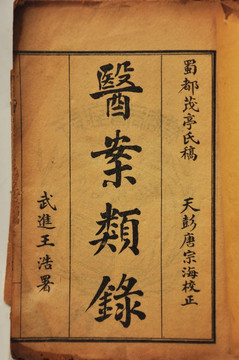 蜀都茂亭氏稿　天彭唐宗海校正
醫案類錄
武進王浩署